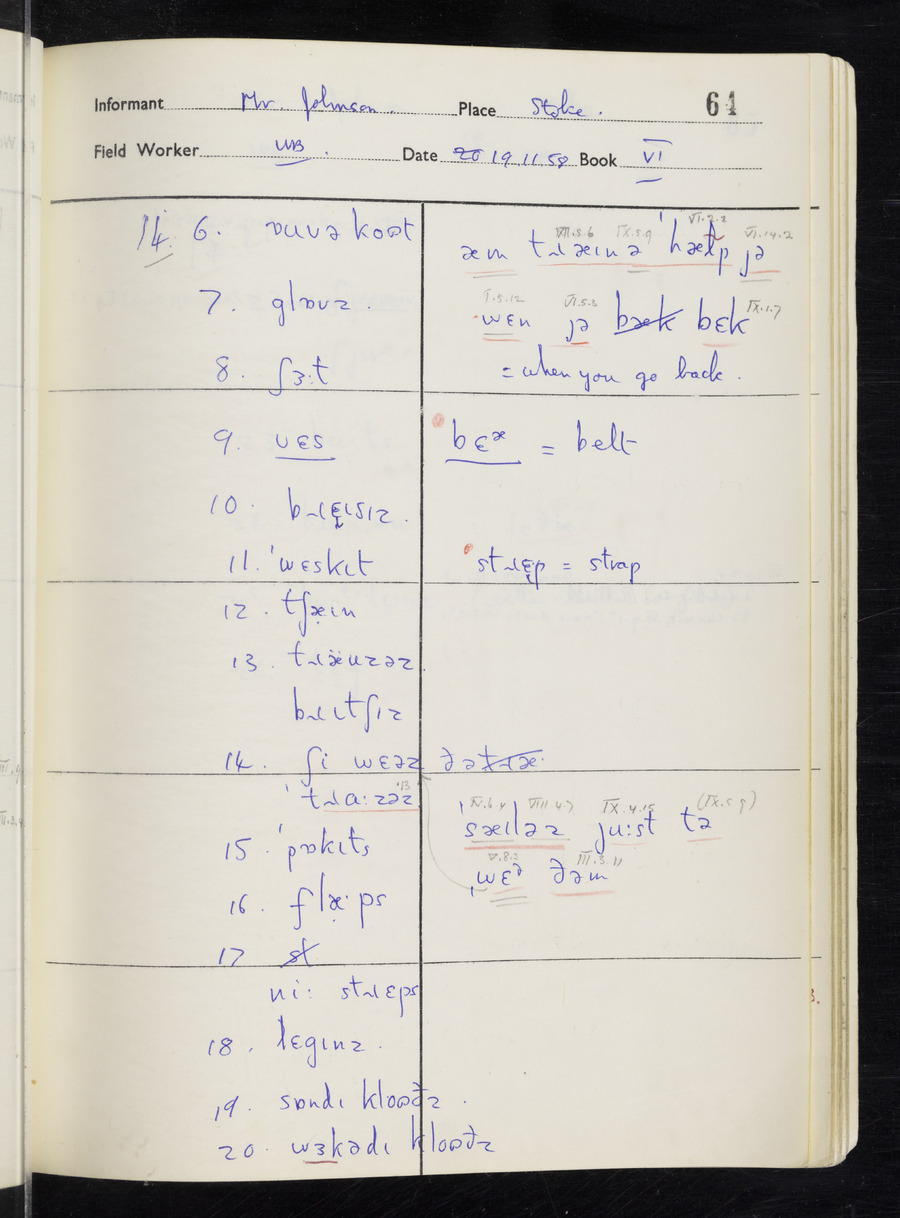 Informant Mr. Johnson. Place Stoke. 64
Field Worker WB. Date 20 19.11.58 Book VI
14. 6. ɒuvə koət
7. glɒuz.
8. ʃɜ:t
9. vɛs
10. bɹɛɪsɪz.
11. ˈwɛskɪt
12. tʃæɪn
13. tɹæuzəz
bɹɪtʃɪz
14. ʃi wɛəz ðə tɹæ
ˈtɹɑ:zəz '13
15. ˈpɒkɪts
16. flæ·ps
17 st
ni: stɹɛps
18. lɛgɪnz.
19. sɒndɪ kloəðz.
20. wɜkədɪ kloəðz
VII.5.6 IX.5.9 VI.2.2 VI.14.2
æm tɹæɪnə ˈhæɫp jə
I.5.12 VI.5.3 IX.1.7
wɛn jə bæk bɛk
= when you go back.
bɛᵆ = belt
stɹɛp = strap
IV.6.4 VIII.4.7 IX.4.15 (IX.5.9)
ˈsæɪləz ju:st tə
V.8.2 III.3.11
ˌwɛᵊ ðəm